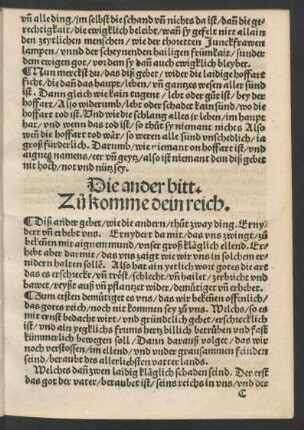 vñ all ding / im selbst die schand vñ nichts da ist / dañ die ge⸗
rechtigkait / die ewigklich beleibt / wañ sy gefelt nitt allain
den zeytlichen menschen / wie der thoretten Junckfrawen
lampen / vnnd der scheynenden hailigen frümkait / sunder
dem ewigen gor / vor dem sy dañ auch ewigklich bleybet.
¶ Nun merckst du / das diß gebet / wider die laidige hoffart
ficht / die dañ das haupt / leben / vñ gantzes wesen aller sünd
ist. Dann gleich wie kain tugent / lebt oder gůt ist / bey der
hoffart / Also widerumb / lebt oder schadet kain sünd / wo die
hoffart tod ist. Und wie die schlang alles jr leben / im haupt
hat / vnd wenn das tod ist / so thůt sy niemant nichts Also
weñ die hoffart tod wår / so weren alle sünd vnschedlich / ia
groß fürderlich. Darumb / wie niemant on hoffart ist / vnd
aignes namens / eer vñ geytz / also ist niemant dem diß gebet
nit hoch / not vnd nütz sey.
Die ander bitt.
Zů komme dein reich.
¶ Diß ander gebet / wie die andern / thůt zway ding. Erny⸗
dert vñ erhebt vns. Ernydert da mit / das vns zwingt / zů
bekeñen mit aignem mund / vnser groß klåglich ellend. Er⸗
hebt aber darmit / das vns zaigt wie wir vns in solchem er⸗
nidern halten sollẽ. Also hat ain yetlich wort gottes die art
das es erschreckt / vñ trôst / schlecht / vñ hailet / zerbricht vnd
bawet / reyßt auß vñ pflantzet wider / demütiget vñ erhebet.
¶ Zum ersten demütiget es vns / das wir bekeñen offenlich /
das gottes reich / noch nit kommen sey zů vns. Welchs / so es
mit ernst bedacht wirt / vnd grüntlich gebet / erschrecklich
ist / vnd ain yegklichs frums hertz billich betrüben vnd fast
kümmerlich bewegen soll / Dann darauß volget / das wie
noch verstossen / im ellend / vnd vnder grausammen feinden
seind / beraubt des allerliebsten vatter lands.
Welches dañ zwen laidig klåglich schaden seind. Der erst
das got der vater / beraubet ist / seins reichs in vns / vnd der
C